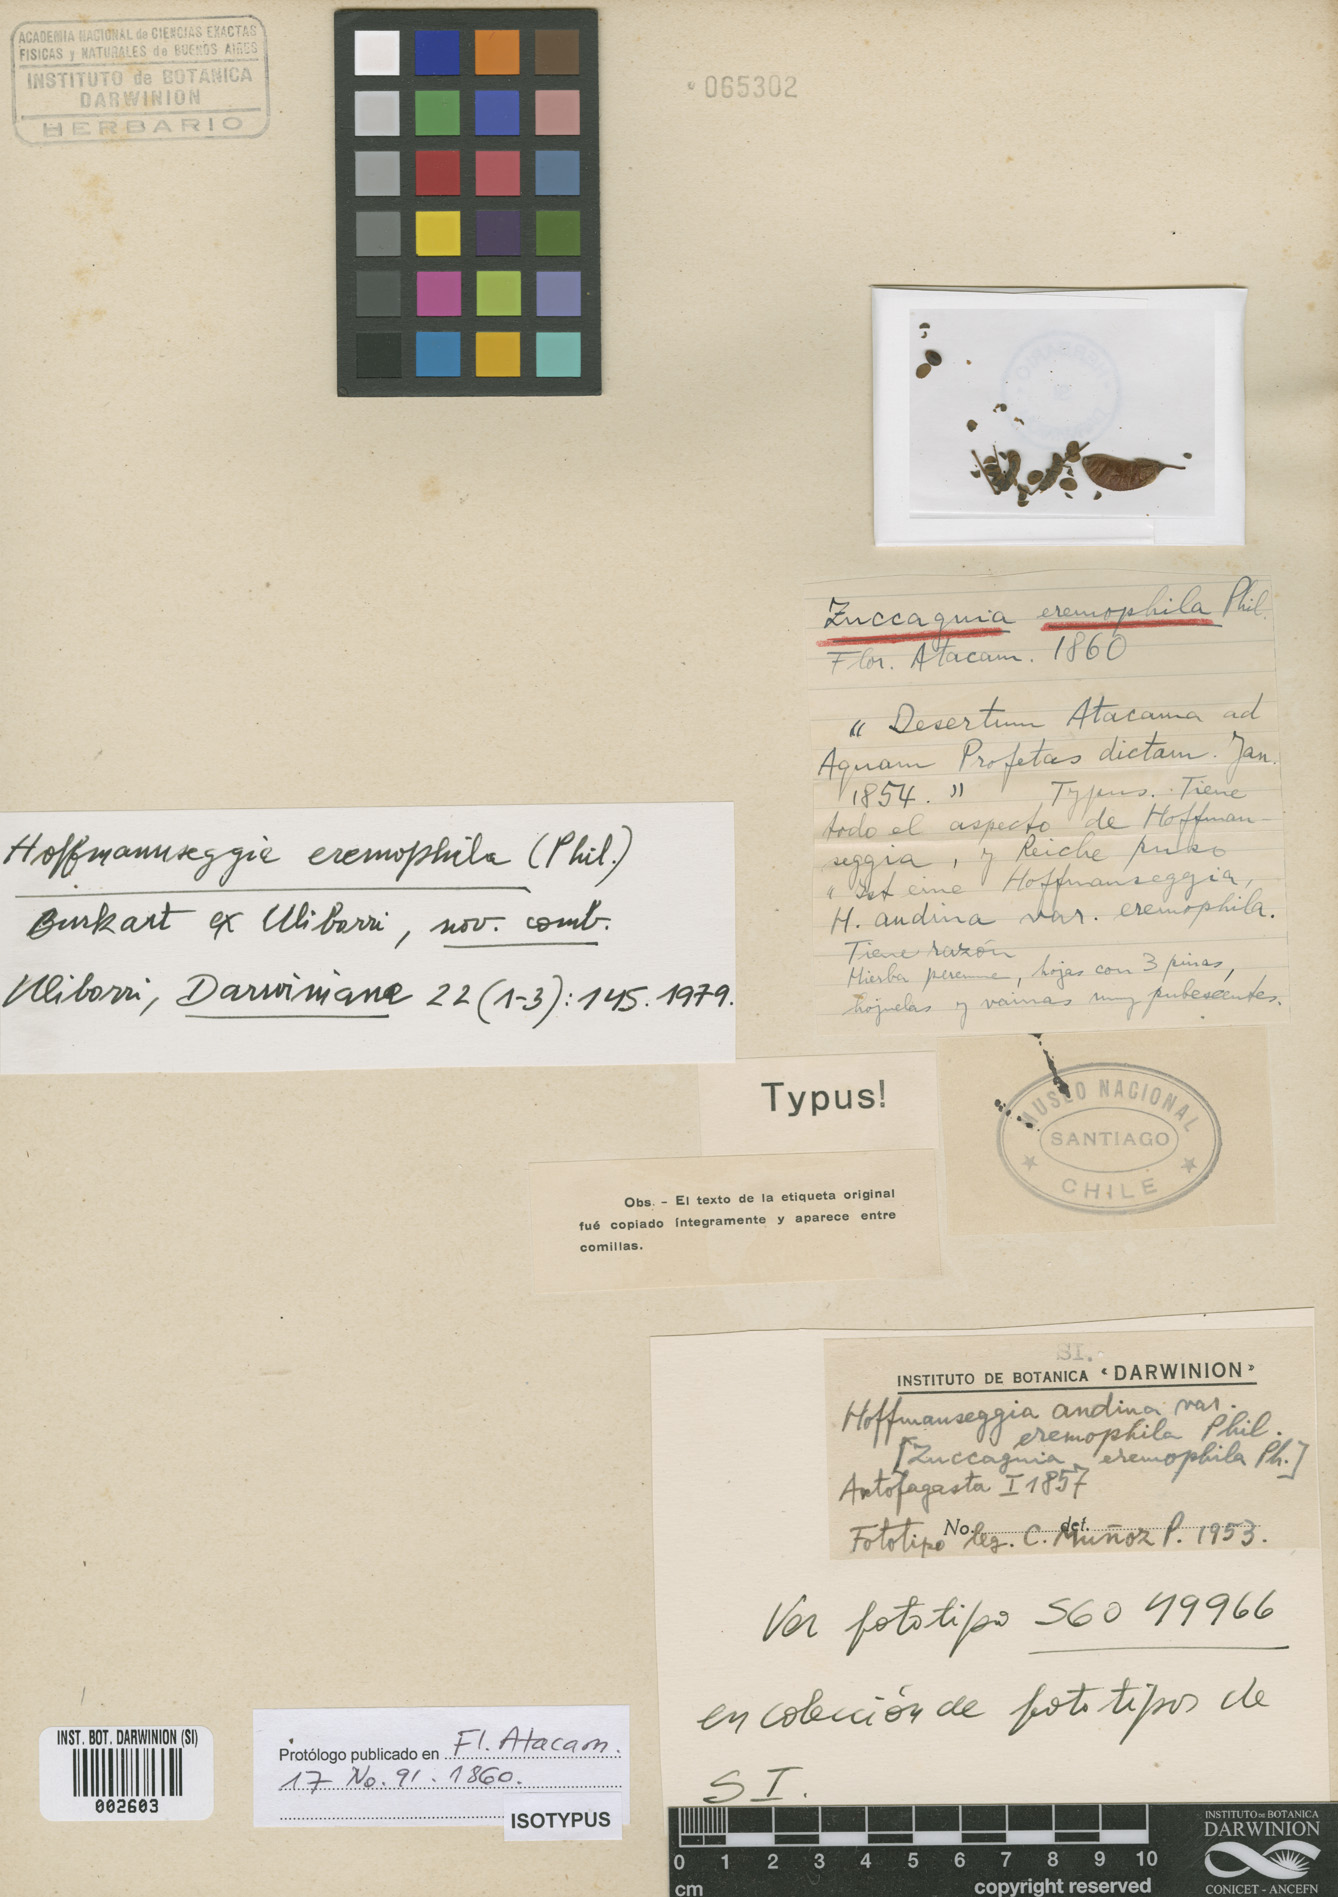 ACADEMIA NACIONAL de CIENCIAS EXACTAS
FISICAS y NATURALES de BUENOS AIRES
INSTITUTO de BOTANICA
DARWINION
HERBARIO
065302
Zuccagnia eremophila Phil.
Flor. Atacam. 1860
" Desertum Atacama ad
Aquam Profetas dictam. Jan.
1854. " Typus. Tiene
todo el aspecto de Hoffman-
seggia, y Reiche puso
" Ist eine Hoffmanseggia,
H. andina var. eremophila.
Tiene razón
Hierba perenne, hojas con 3 pinas,
hojuelas y vainas muy pubescentes.
Hoffmannseggia eremophila (Phil.)
Burkart ex Ulibarri, nov. comb.
Ulibarri, Darwiniana 22 (1-3): 145. 1979.
Typus!
MUSEO NACIONAL
SANTIAGO
CHILE
Obs. - El texto de la etiqueta original
fué copiado íntegramente y aparece entre
comillas.
SI.
INSTITUTO DE BOTANICA «DARWINION»
Hoffmanseggia andina var.
eremophila Phil.
[Zuccagnia eremophila Ph.]
Antofagasta I 1857
No. det.
Fototipo leg. C. Muñoz P. 1953.
Ver fototipo SGO 49966
en colección de fototipos de
SI.
INST. BOT. DARWINION (SI)
002603
Protólogo publicado en Fl. Atacam.
17 No. 91. 1860.
ISOTYPUS
0 1 2 3 4 5 6 7 8 9 10
cm copyright reserved
INSTITUTO DE BOTANICA
DARWINION
CONICET - ANCEFN